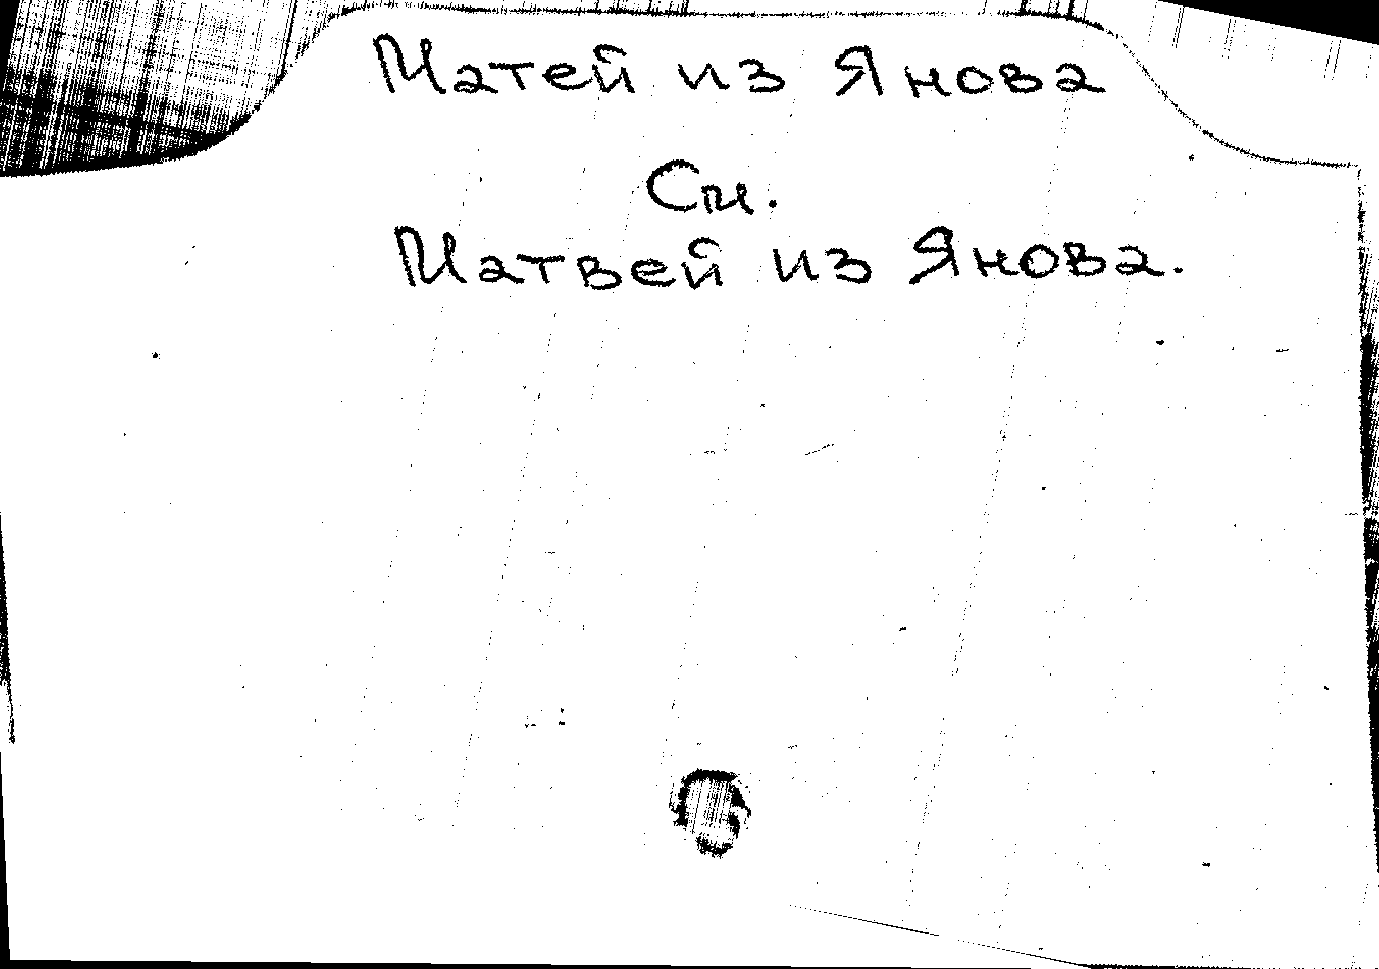 Матей из Янова
См.
Матвей из Янова.